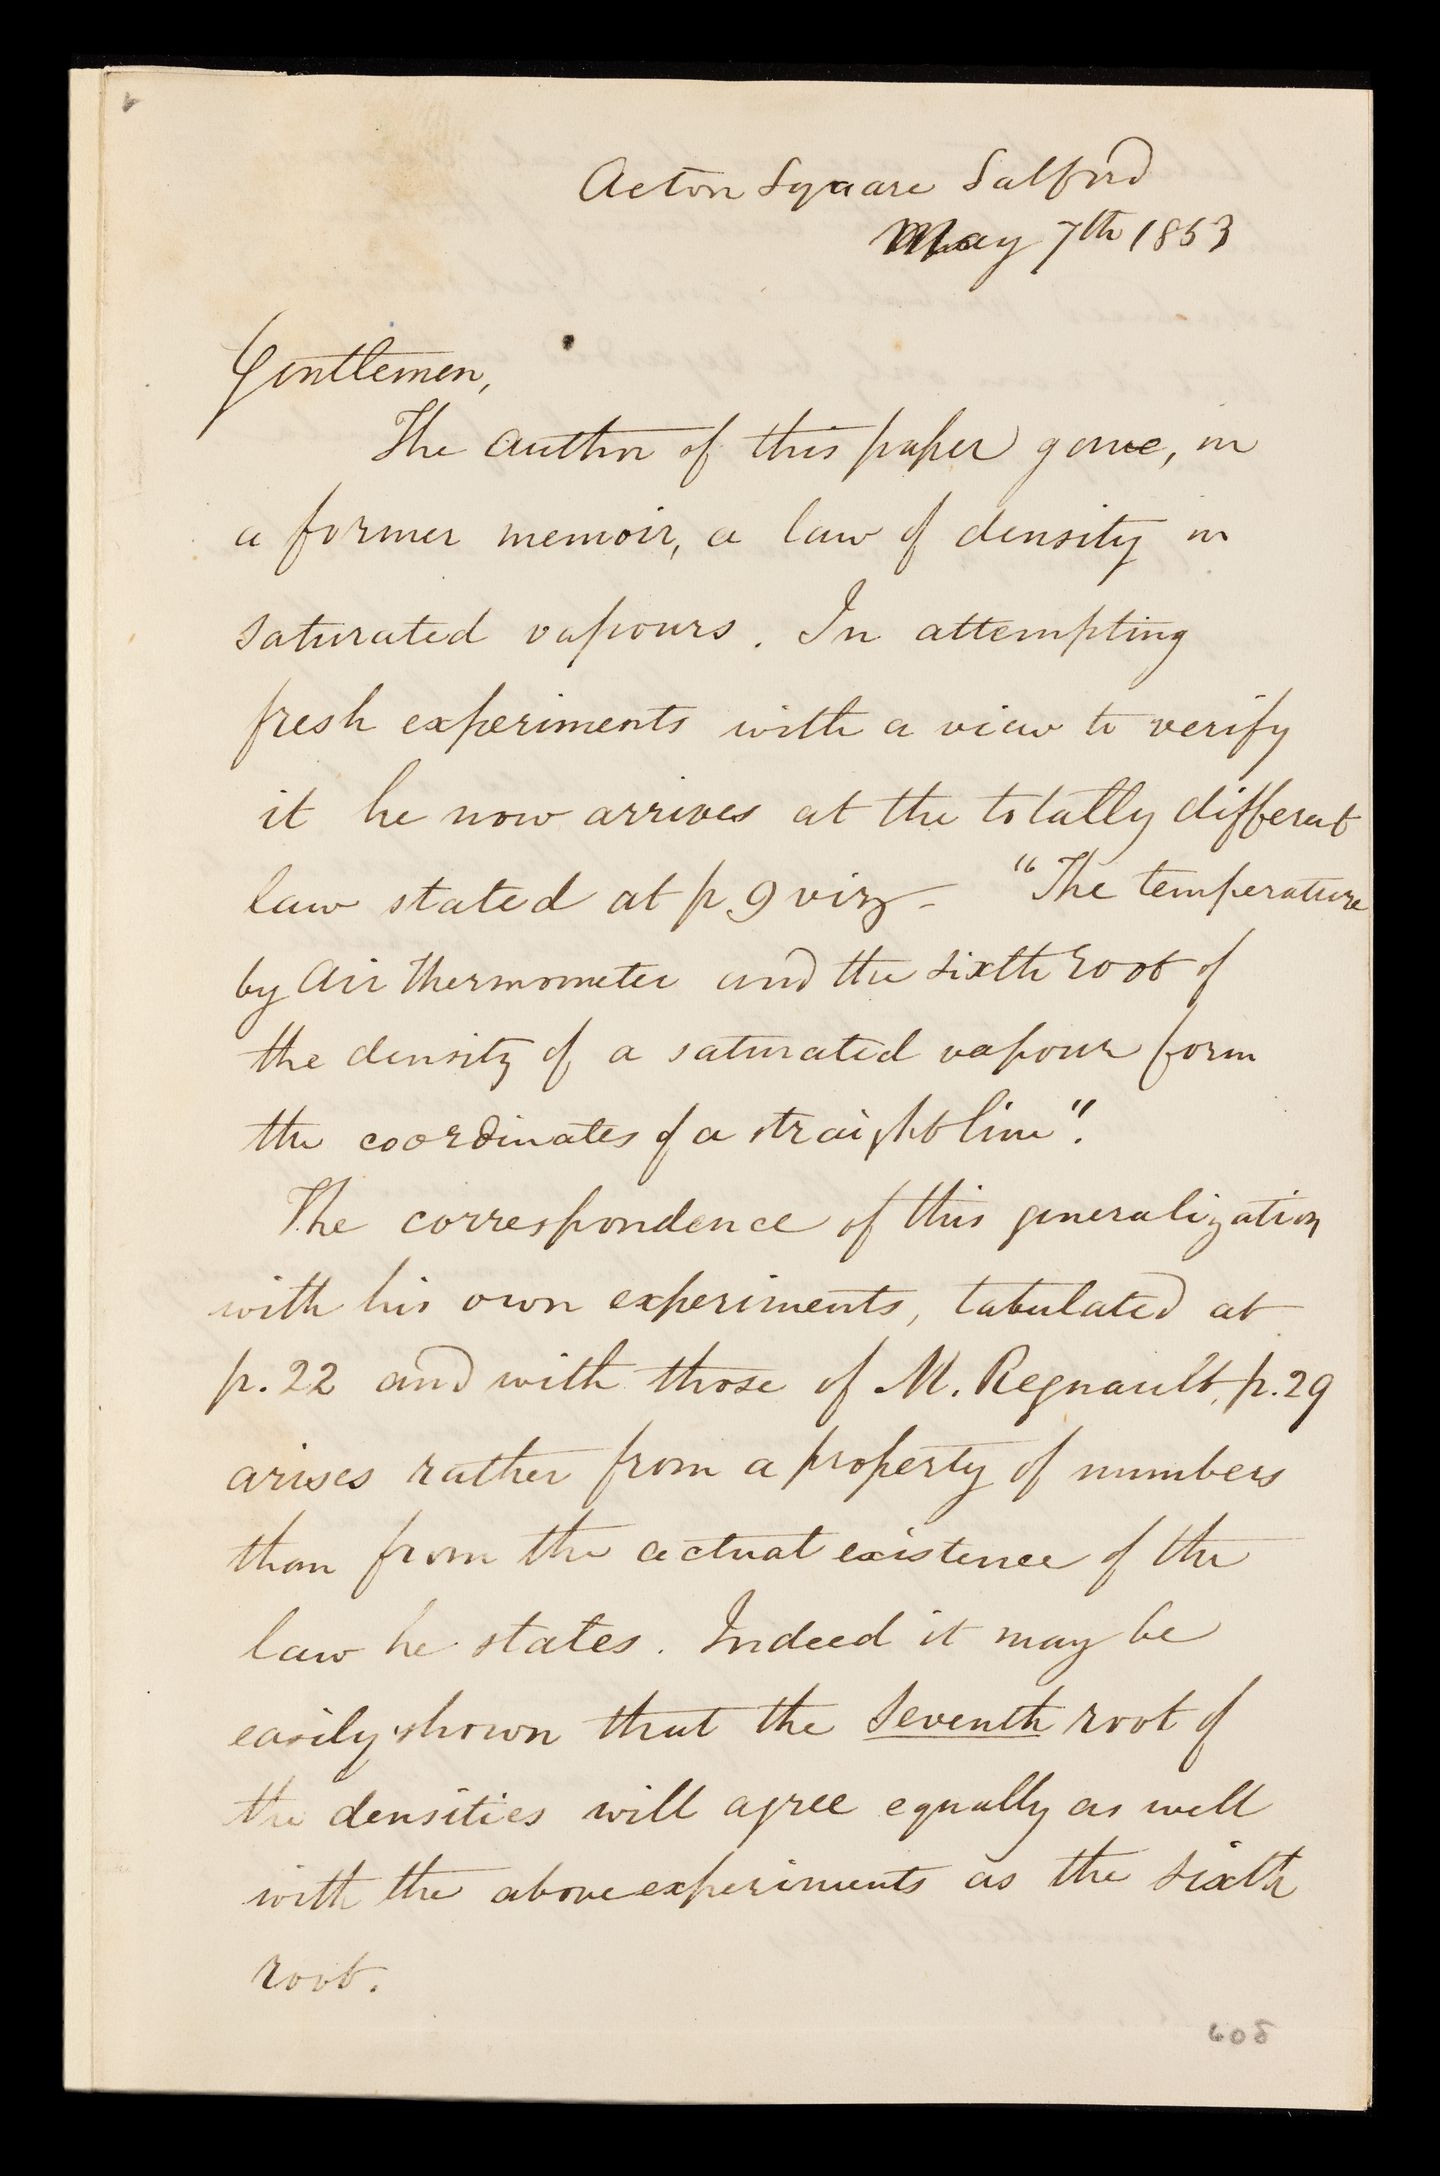 Acton Square Salford
May 7th 1853
Gentlemen,
The author of this paper gave, in
a former memoir, a law of density in
saturated vapours. In attempting
fresh experiments with a view to verify
it he now arrives at the totally different
law stated at p 9 viz - "The temperature
by Air thermometer and the sixth root of
the density of a saturated vapour form
the coordinates of a straight line".
The correspondence of this generalization
with his own experiments, tabulated at
p. 22 and with those of M. Regnault, p. 29
arises rather from a property of numbers
than from the actual existence of the
law he states. Indeed it may be
easily shown that the seventh root of
the densities will agree equally as well
with the above experiments as the sixth
root.